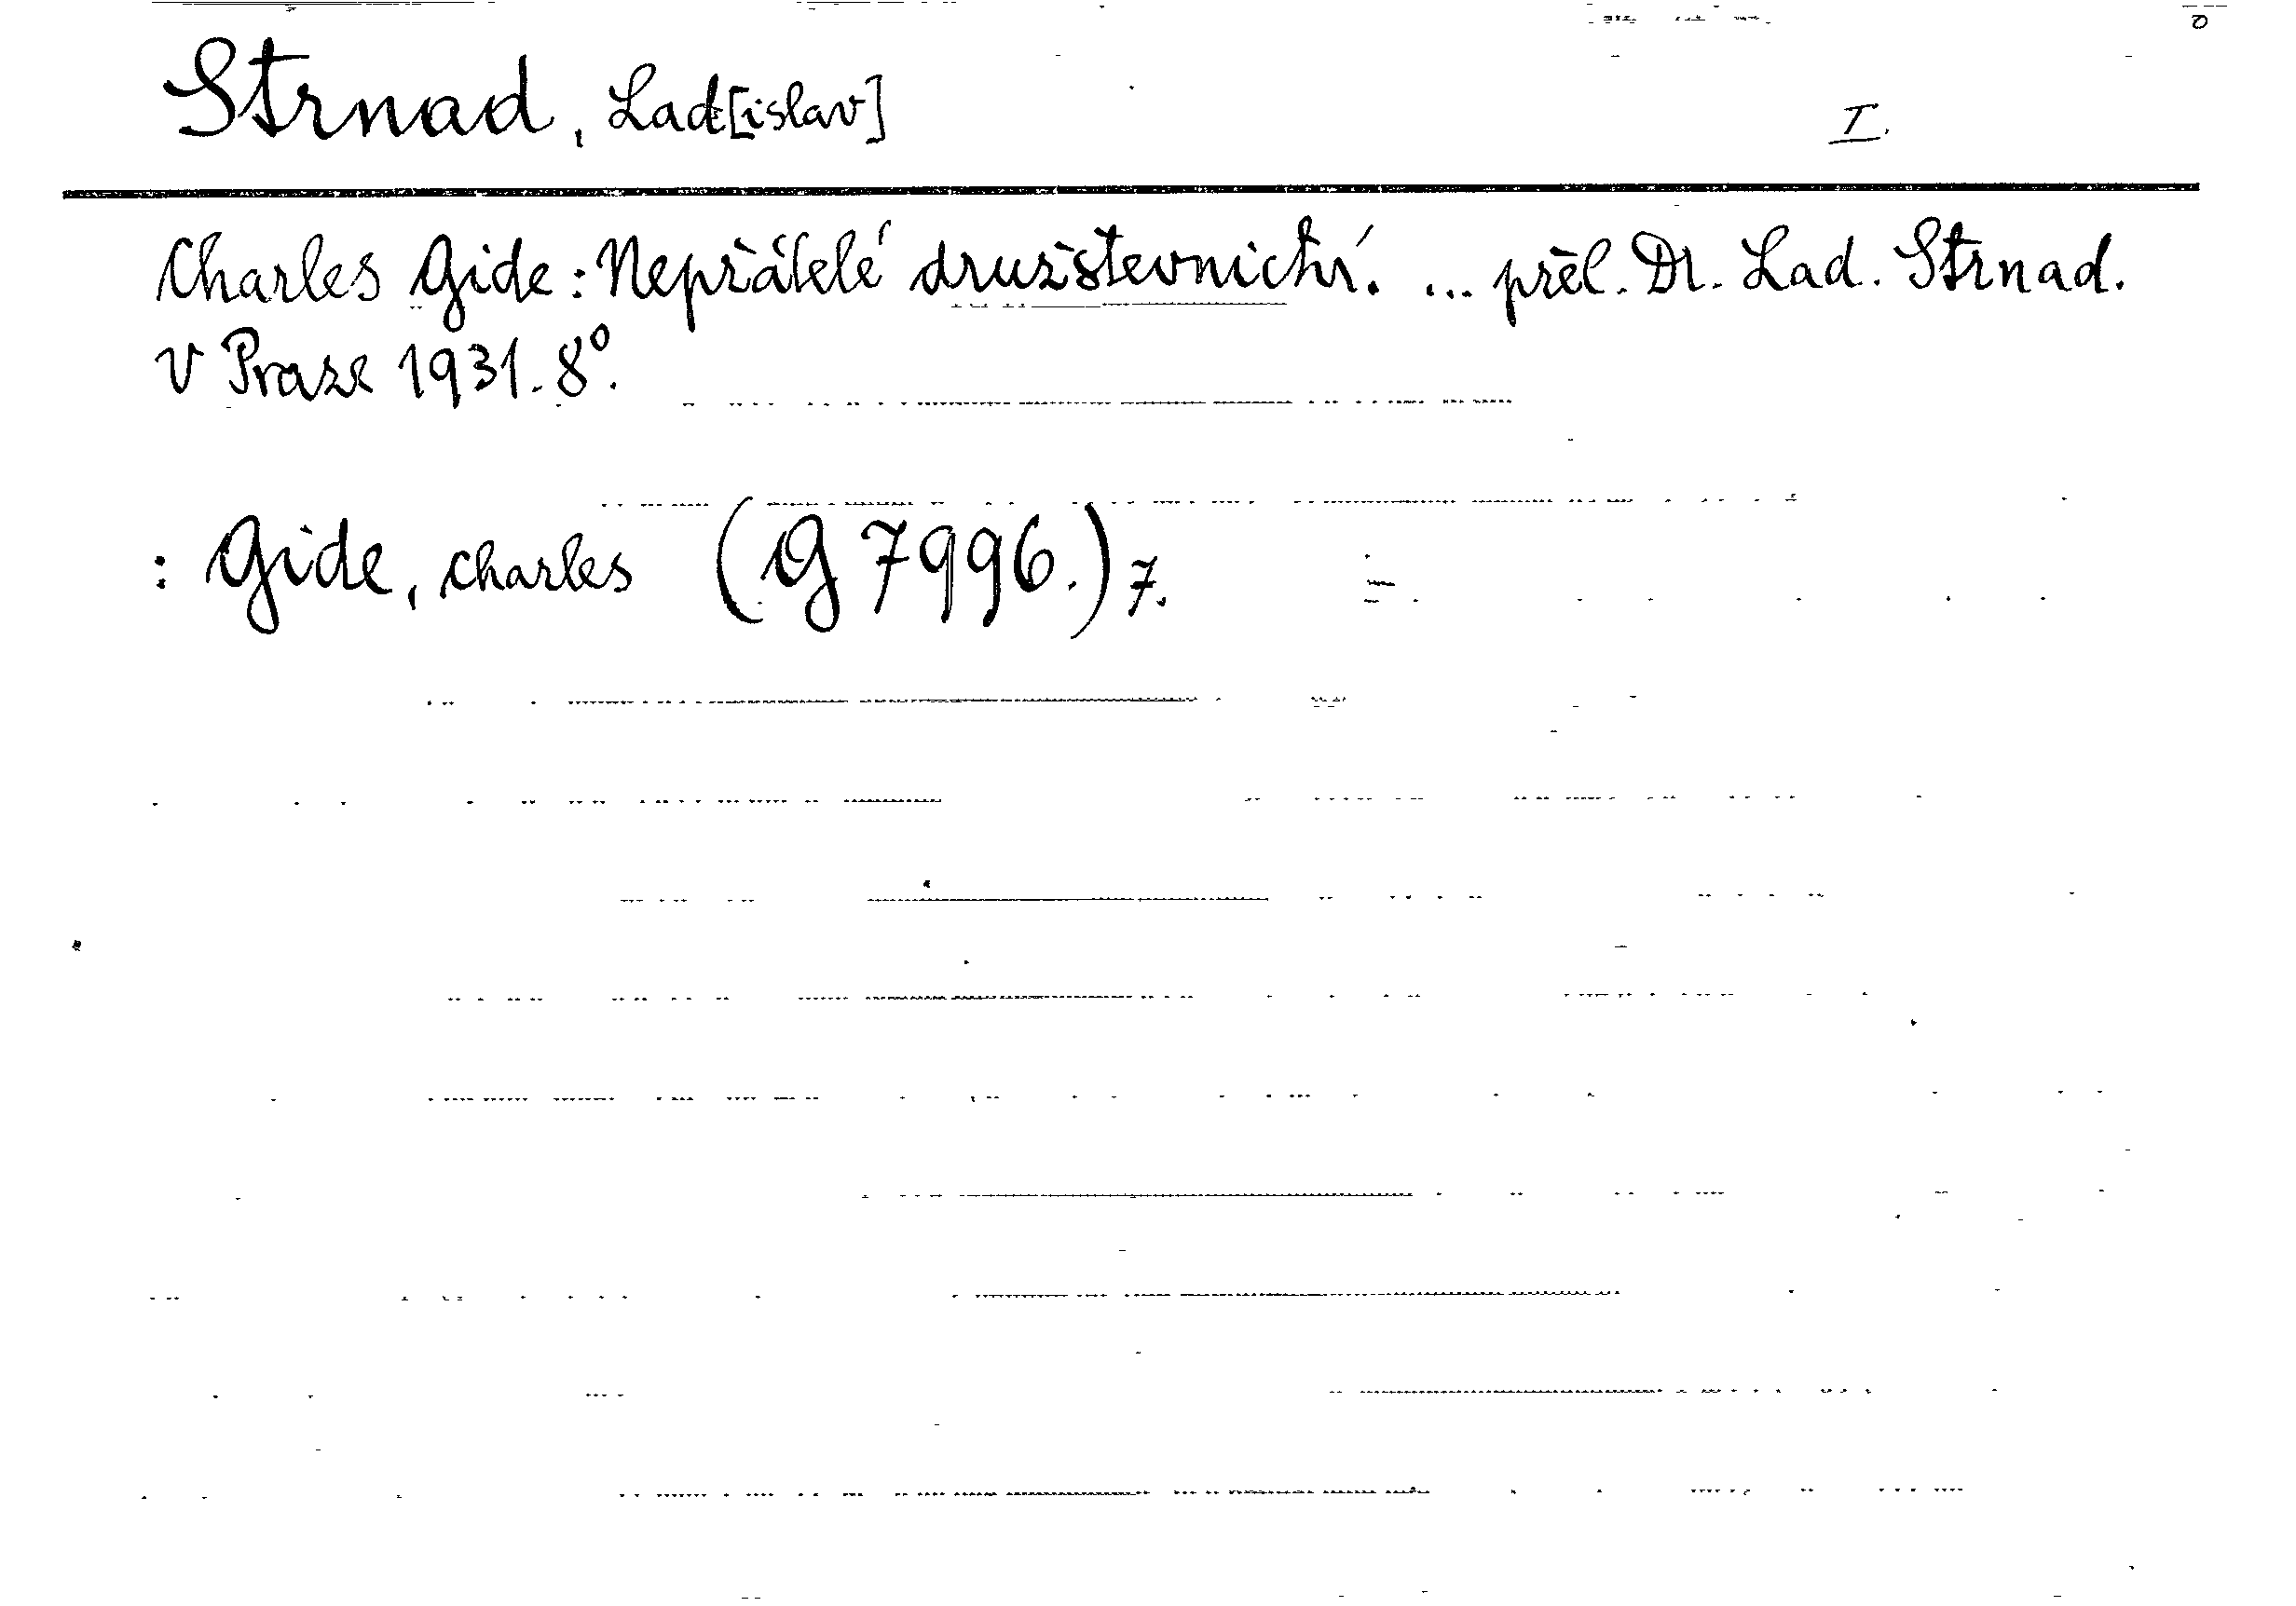 Strnad, Lad[islav] I.
Charles Gide: Nepřátelé družstevnictví. ... přel. Dr. Lad. Strnad.
V Praze 1931. 8°.
: Gide, Charles (G 7996.) 7.